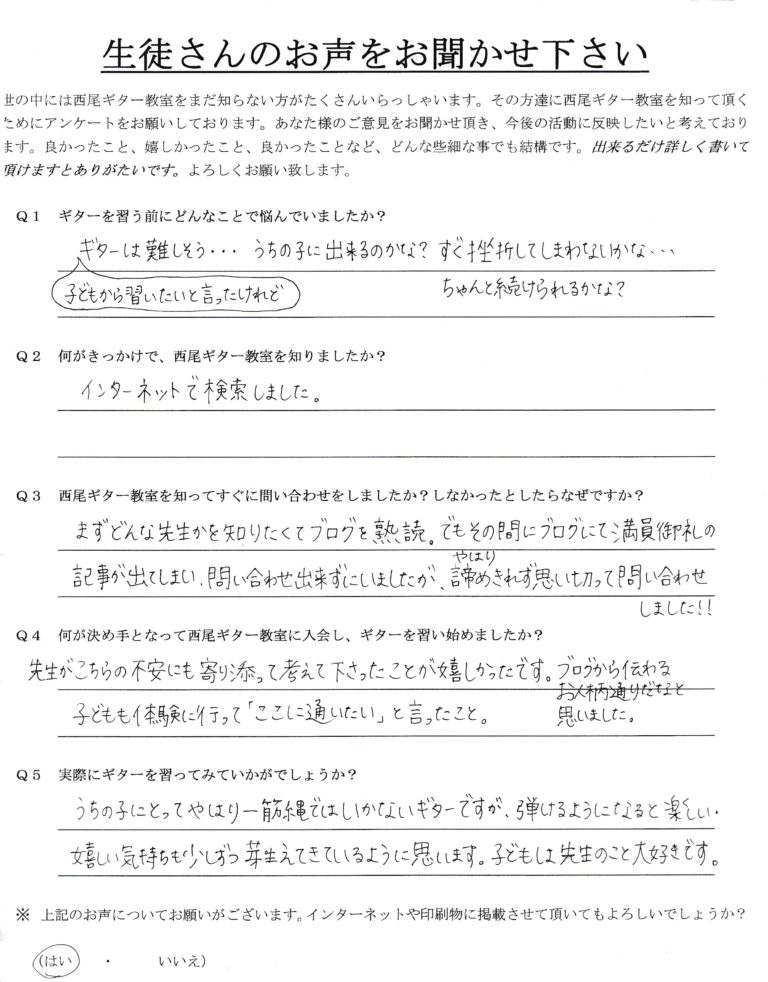 生徒さんのお声をお聞かせ下さい
世の中には西尾ギター教室をまだ知らない方がたくさんいらっしゃいます。その方達に西尾ギター教室を知って頂く
ためにアンケートをお願いしております。あなた様のご意見をお聞かせ頂き、今後の活動に反映したいと考えており
ます。良かったこと、嬉しかったこと、良かったことなど、どんな些細な事でも結構です。出来るだけ詳しく書いて
頂けますとありがたいです。よろしくお願い致します。
Q1 ギターを習う前にどんなことで悩んでいましたか?
ギターは難しそう・・・ うちの子に出来るのかな? すぐ挫折してしまわないかな・・・
子どもから習いたいと言ったけれど
ちゃんと続けられるかな?
Q2 何がきっかけで、西尾ギター教室を知りましたか?
インターネットで検索しました。
Q3 西尾ギター教室を知ってすぐに問い合わせをしましたか?しなかったとしたらなぜですか?
まずどんな先生かを知りたくてブログを熟読。でもその間にブログにて満員御礼の
記事が出てしまい、問い合わせ出来ずにいましたが、やはり諦めきれず思い切って問い合わせ
しました!!
Q4 何が決め手となって西尾ギター教室に入会し、ギターを習い始めましたか?
先生がこちらの不安にも寄り添って考えて下さったことが嬉しかったです。ブログから伝わる
お人柄通りだなと
思いました。
子どもも体験に行って「ここに通いたい」と言ったこと。
Q5 実際にギターを習ってみていかがでしょうか?
うちの子にとってやはり一筋縄ではいかないギターですが、弾けるようになると楽しい・
嬉しい気持ちも少しずつ芽生えてきているように思います。子どもは先生のこと大好きです。
※ 上記のお声についてお願いがございます。インターネットや印刷物に掲載させて頂いてもよろしいでしょうか?
(はい ・ いいえ)